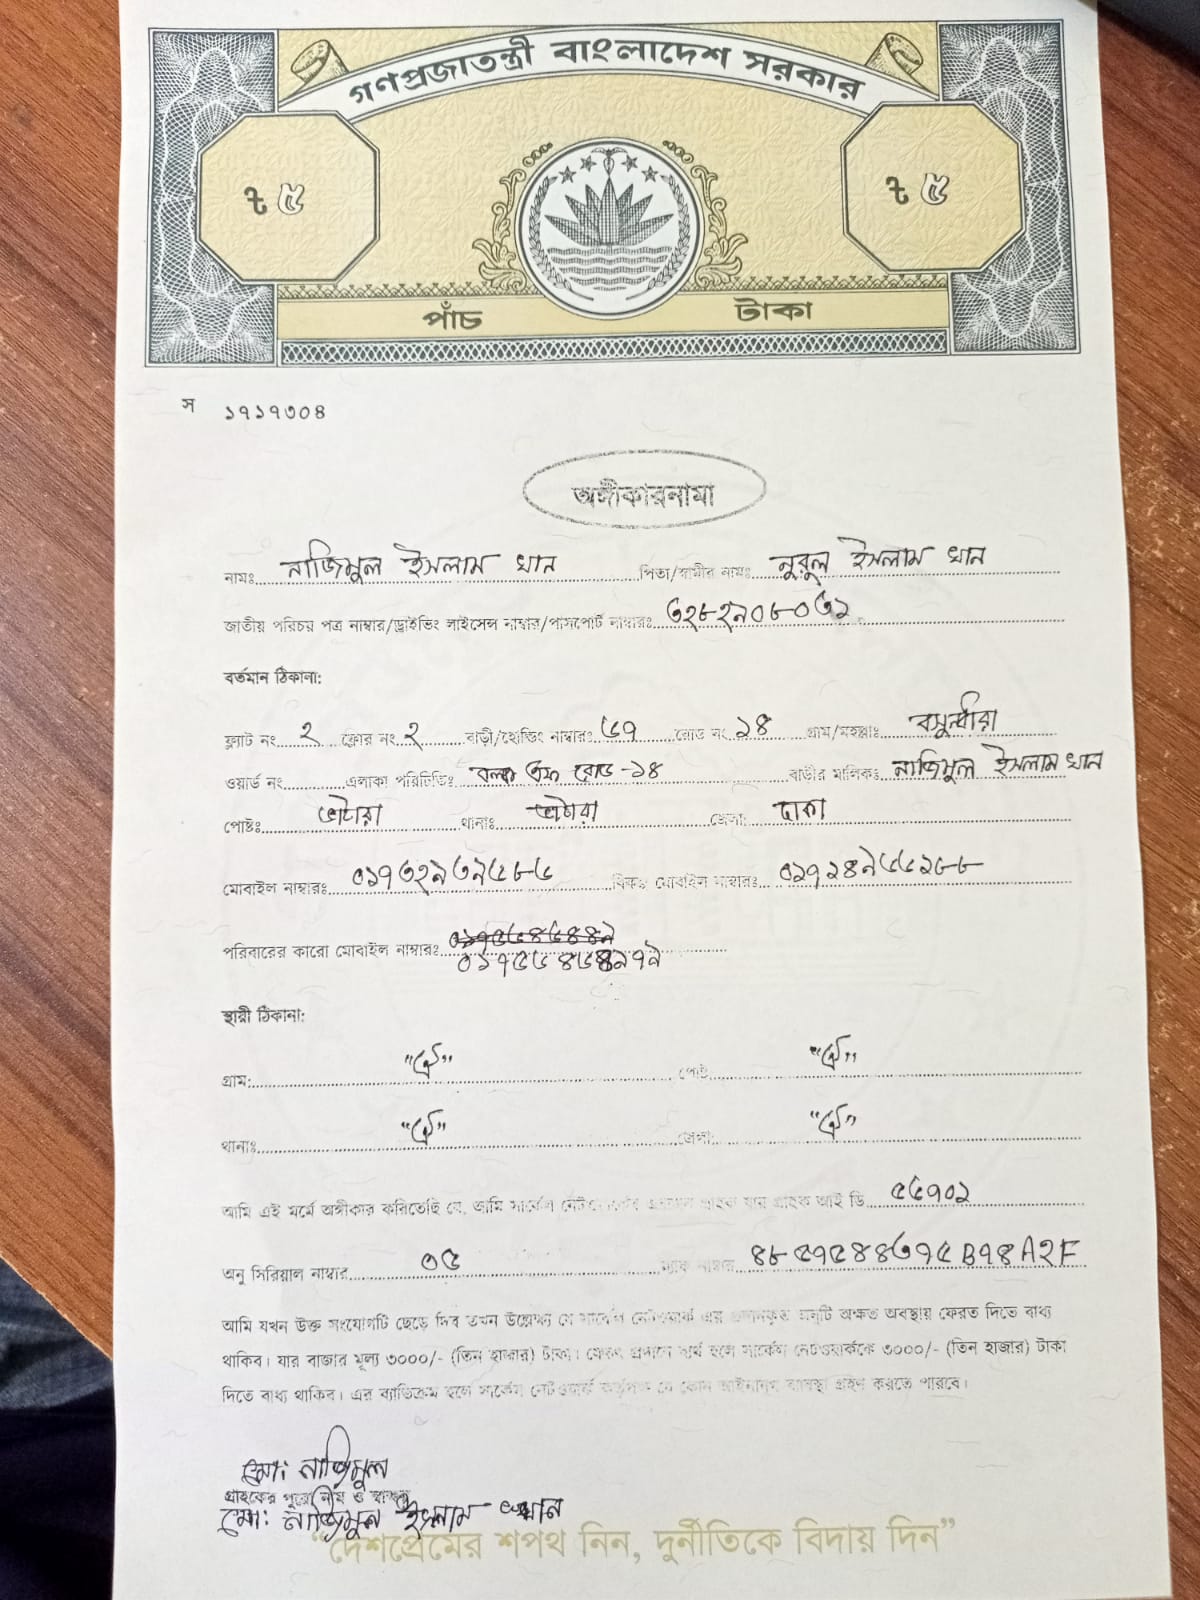 গণপ্রজাতন্ত্রী বাংলাদেশ সরকার
৳ ৫ ৳ ৫
পাঁচ টাকা
স ১৭১৭৩০৪
অঙ্গীকারনামা
নামঃ নাজিমুল ইসলাম খান পিতা/স্বামীর নামঃ নুরুল ইসলাম খান
জাতীয় পরিচয় পত্র নাম্বার/ড্রাইভিং লাইসেন্স নাম্বার/পাসপোর্ট নাম্বারঃ ৩২৮২৯০৮০৩১
বর্তমান ঠিকানা:
ফ্ল্যাট নং ২ ফ্লোর নং ২ বাড়ী/হোল্ডিং নাম্বারঃ ৬৭ রোড নং ১৪ গ্রাম/মহল্লাঃ বসুন্ধরা
ওয়ার্ড নং এলাকা পরিচিতিঃ রোড -১৪ বাড়ীর মালিকঃ নাজিমুল ইসলাম খান
পোষ্টঃ ভাটারা থানাঃ ভাটারা জেলা: ঢাকা
মোবাইল নাম্বারঃ ০১৭৩২৯৩৯৫৮৬ বিকল্প মোবাইল নাম্বারঃ ০১৭১৪৯৬৬২৮৮
পরিবারের কারো মোবাইল নাম্বারঃ
স্থায়ী ঠিকানা:
গ্রাম: "ঐ" পোষ্ট "ঐ"
থানাঃ "ঐ" জেলা: "ঐ"
আমি এই মর্মে অঙ্গীকার করিতেছি যে, আমি সার্কেল নেটওয়ার্কের একজন গ্রাহক যার গ্রাহক আই ডি ৫৬৭০১
অনু সিরিয়াল নাম্বার ০৫ ম্যাক নাম্বার ৪৮৫৭৫৪৪৩৭৫B৭৪A২F
আমি যখন উক্ত সংযোগটি ছেড়ে দিব তখন উল্লেখ্য যে সার্কেল নেটওয়ার্ক এর প্রদানকৃত অনুটি অক্ষত অবস্থায় ফেরত দিতে বাধ্য
থাকিব। যার বাজার মূল্য ৩০০০/- (তিন হাজার) টাকা। ফেরৎ প্রদানে ব্যর্থ হলে সার্কেল নেটওয়ার্ককে ৩০০০/- (তিন হাজার) টাকা
দিতে বাধ্য থাকিব। এর ব্যতিক্রম হলে সার্কেল নেটওয়ার্ক কর্তৃপক্ষ যে কোন আইনানুগ ব্যবস্থা গ্রহণ করতে পারবে।
মো: নাজিমুল
গ্রাহকের পুরো নাম ও স্বাক্ষর
মো: নাজিমুল ইসলাম খান
"দেশপ্রেমের শপথ নিন, দুর্নীতিকে বিদায় দিন"